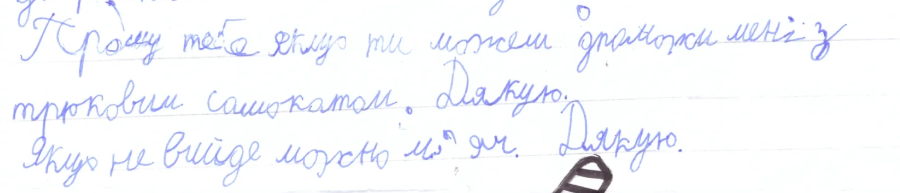 Прошу тебе якщо ти можеш допоможи мені з
трюковим самокатом. Дякую.
Якщо не вийде можно м'яч. Дякую.